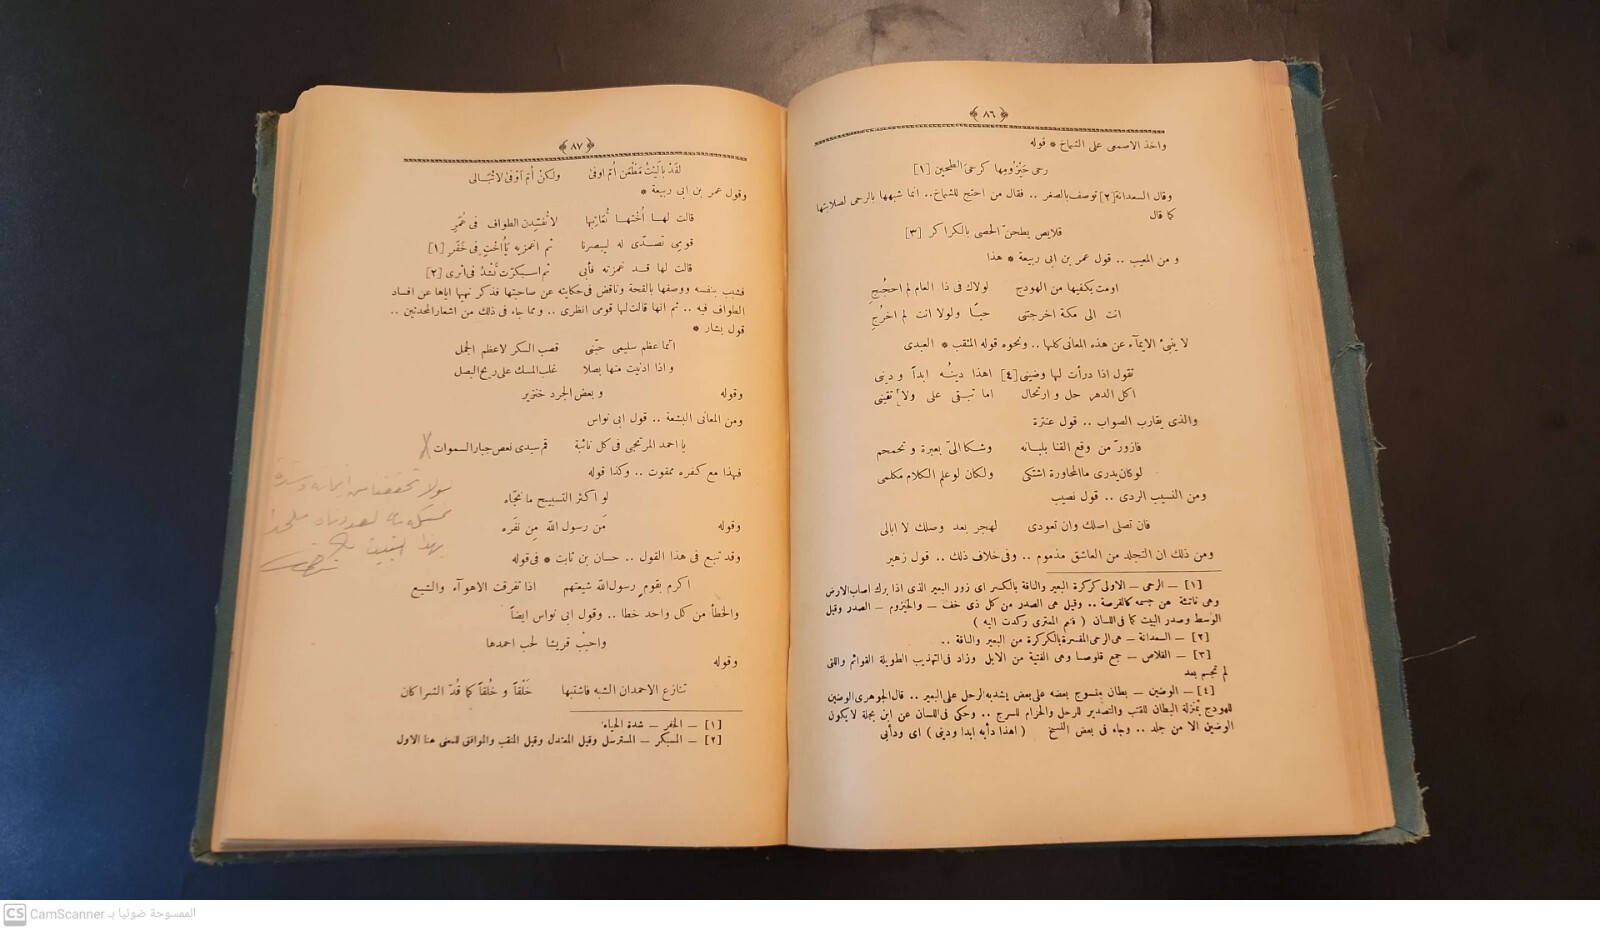 ﴿ ٨٦ ﴾
واخذ الاصمعى على الشماخ * قوله
رحى حَيْزُومِها كرحى الطحين [١]
وقال السعدانة [٢] توصف بالصغر .. فقال من احتج للشماخ.. انما شبهها بالرحى لصلابتها
كما قال
قلايص يطحنّ الحصى بالكراكر [٣]
و من المعيب .. قول عمر بن ابى ربيعة * هذا
اومت بكفيها من الهودج لولاك فى ذا العام لم احجُجِ
انت الى مكة اخرجتنى حبّاً ولولا انت لم اخرُجِ
لا ينبئ الايمآء عن هذه المعانى كلها .. ونحوه قوله المثقب * العبدى
تقول اذا درأت لها وضينى [٤] اهذا دينُه ابداً و دينى
اكل الدهر حل و ارتحال اما تبقى على ولا تقينى
والذى يقارب الصواب .. قول عنترة
فازورّ من وقع القنا بلبانه وشكا الىّ بعبرة و تحمحم
لوكان يدرى ما المحاورة اشتكى ولكان لو علم الكلام مكلمى
ومن النسيب الردى .. قول نصيب
فان تصلى اصلك وان تعودى لهجر بعد وصلك لا ابالى
ومن ذلك ان التجلد من العاشق مذموم .. وفى خلاف ذلك .. قول زهير
[١] – الرحى – الاولى كركرة البعير والناقة بالكسر اى زور البعير الذى اذا برك اصاب الارض
وهى ناتئة عن جسمه كالقرصة .. وقيل هى الصدر من كل ذى خف – والحيزوم – الصدر وقيل
الوسط وصدر البيت كما فى اللسان ( فنعم المعترى ركدت اليه )
[٢] – السعدانة – هى الرحى المفسرة بالكركرة من البعير والناقة ..
[٣] – القلاص – جمع قلوصا وهى الفتية من الابل وزاد فى التهذيب الطويلة القوائم واللتى
لم تجسم بعد
[٤] – الوضين – بطان منسوج بعضه على بعض يشد به الرحل على البعير .. قال الجوهرى الوضين
للهودج بمنزلة البطان للقتب والتصدير للرحل والحزام للسرج .. وحكى فى اللسان عن ابن جبلة لا يكون
الوضين الا من جلد .. وجاء فى بعض النسخ ( اهذا دأبه ابدا ودينى ) اى ودأبى
﴿ ٨٧ ﴾
لقَدْ بالَيْتُ مَظْعَن اُمّ اوفىٰ ولكنْ اُمّ اوْفىٰ لا تُبَالى
وقول عمر بن ابى ربيعة *
قالت لهـا اُختهـا تُعاتِبها لا تُفسِدن الطواف فى عُمَرِ
قومى تصدّى له ليبصرنا ثم اغمزيه يَاُاختِ فى خَفَرِ [١]
قالت لها قـد غمزته فأبى ثم اسبكرّت تَشْتدّ فى اثرى [٢]
فشبب بنفسه ووصفها بالقحة وناقض فى حكايته عن صاحبتها فذكر نهيها اياها عن افساد
الطواف فيه .. ثم انها قالت لها قومى انظرى .. ومما جاء فى ذلك من اشعار المحدثين ..
قول بشار *
انما عظم سليمى حبّتى قصب السكر لا عظم الجمل
و اذا ادنيت منها بصلا غلب المسك على ريح البصل
وقوله و بعض الجرد خنزير
ومن المعانى البشعة .. قول ابى نواس
يا احمد المرتجى فى كل نائبة قم سيدى نعص جبار السموات
فهذا مع كفره ممقوت .. وكذا قوله
لو اكثر التسبيح ما نجّاه
وقوله مَن رسول الله مِن نَفَره
وقد تبع فى هذا القول .. حسان بن ثابت * فى قوله
اكرم بقومٍ رسول الله شيعتهم اذا تفرقت الاهوآء والشيع
والخطأ من كل واحد خطا .. وقول ابى نواس ايضاً
واحبْب قريشا لحب احمدها
وقوله
تنازع الاحمدان الشبه فاشتبها خَلْقاً و خُلُقاً كما قُدّ الشراكان
[١] – الخفر – شدة الحياء
[٢] – المسبكر – المسترسل وقيل المعتدل وقيل المنتصب والموافق للمعنى هنا الاول
بهذا البيت
CS CamScanner الممسوحة ضوئيا بـ